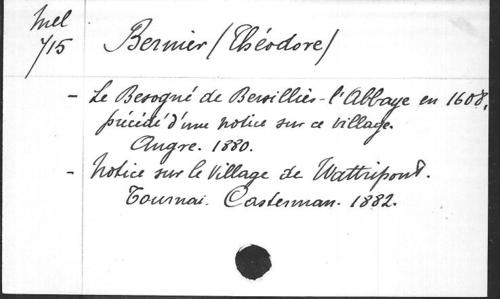 Mel
715
Bernier (Théodore)
- Le Besogné de Bersilliès-l'Abbaye en 1608,
précédé d'une notice sur ce village.
Angre. 1880.
- Notice sur le Village de Wattripont.
Tournai. Casterman. 1882.